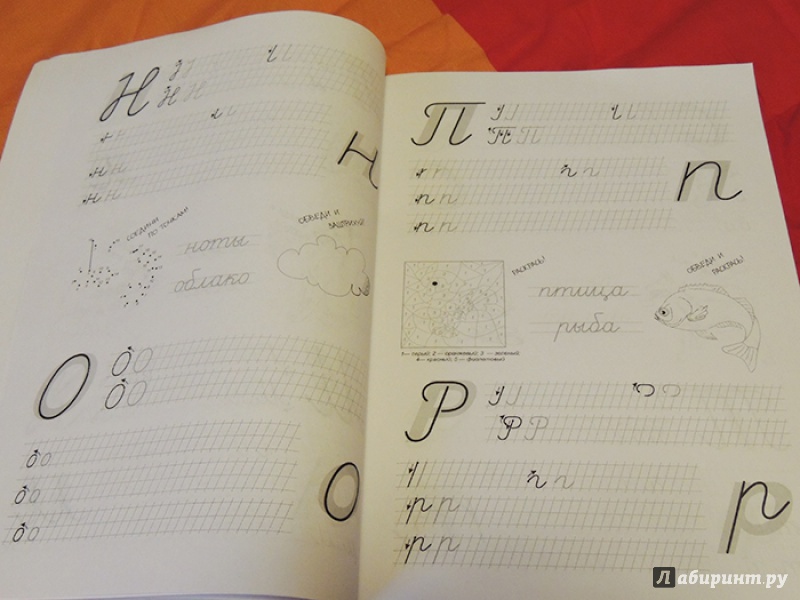 Н Н Н
н
СОЕДИНИ
ПО ТОЧКАМ!
ноты
облако
ОБВЕДИ И
ЗАШТРИХУЙ!
О О О
О О
о о
о о
о о
о
П П П
п
п п
п п
РАСКРАСЬ!
1 — серый; 2 — оранжевый; 3 — зелёный;
4 — красный; 5 — фиолетовый
птица
рыба
ОБВЕДИ И
РАСКРАСЬ!
Р Р Р
р р
р р
р
Лабиринт.ру